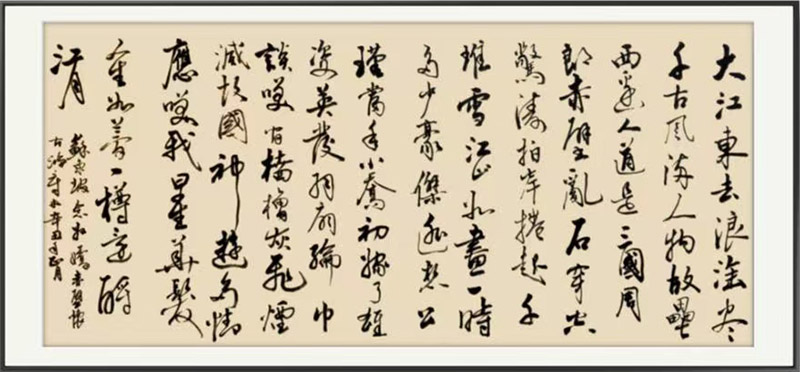 大江東去浪淘尽
千古風流人物故壘
西邊人道是三國周
郎赤壁亂石穿空
驚濤拍岸捲起千
堆雪江山如畫一時
多少豪傑遙想公
瑾當年小喬初嫁了雄
姿英發羽扇綸巾
談笑間檣櫓灰飛煙
滅故國神遊多情
應笑我早生華髮
人生如夢一樽還酹
江月
蘇東坡念奴嬌赤壁懷
古 辛丑年 月